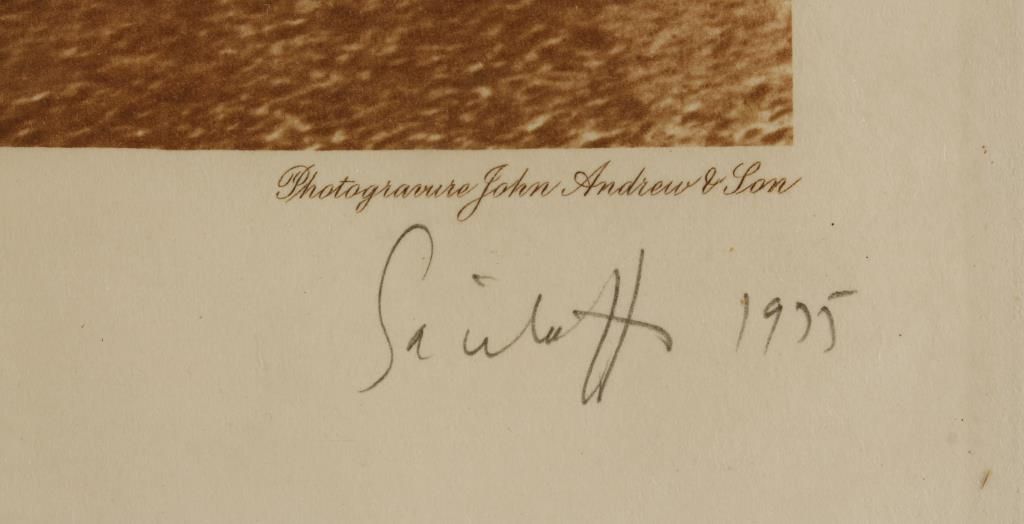 Photogravure John Andrew & Son
1935